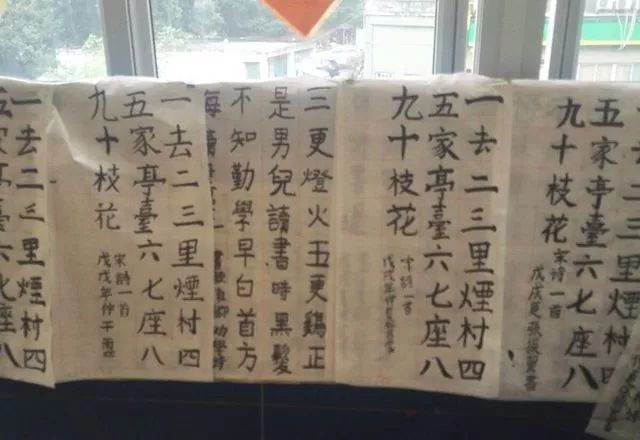 三里煙村四
五家亭臺六七座八
九十枝花
宋詩一首
戊戌夏張
一去二三里煙村四
五家亭臺六七座八
九十枝花
宋詩一首
戊戌年仲
三更燈火五更鷄正
是男兒讀書時黑髮
不知勤學早白首方
悔讀
勸學詩
一去二三里煙村四
五家亭臺六七座八
九十枝花
宋詩一首
戊戌年仲
一去二三里煙村四
五家亭臺六七座八